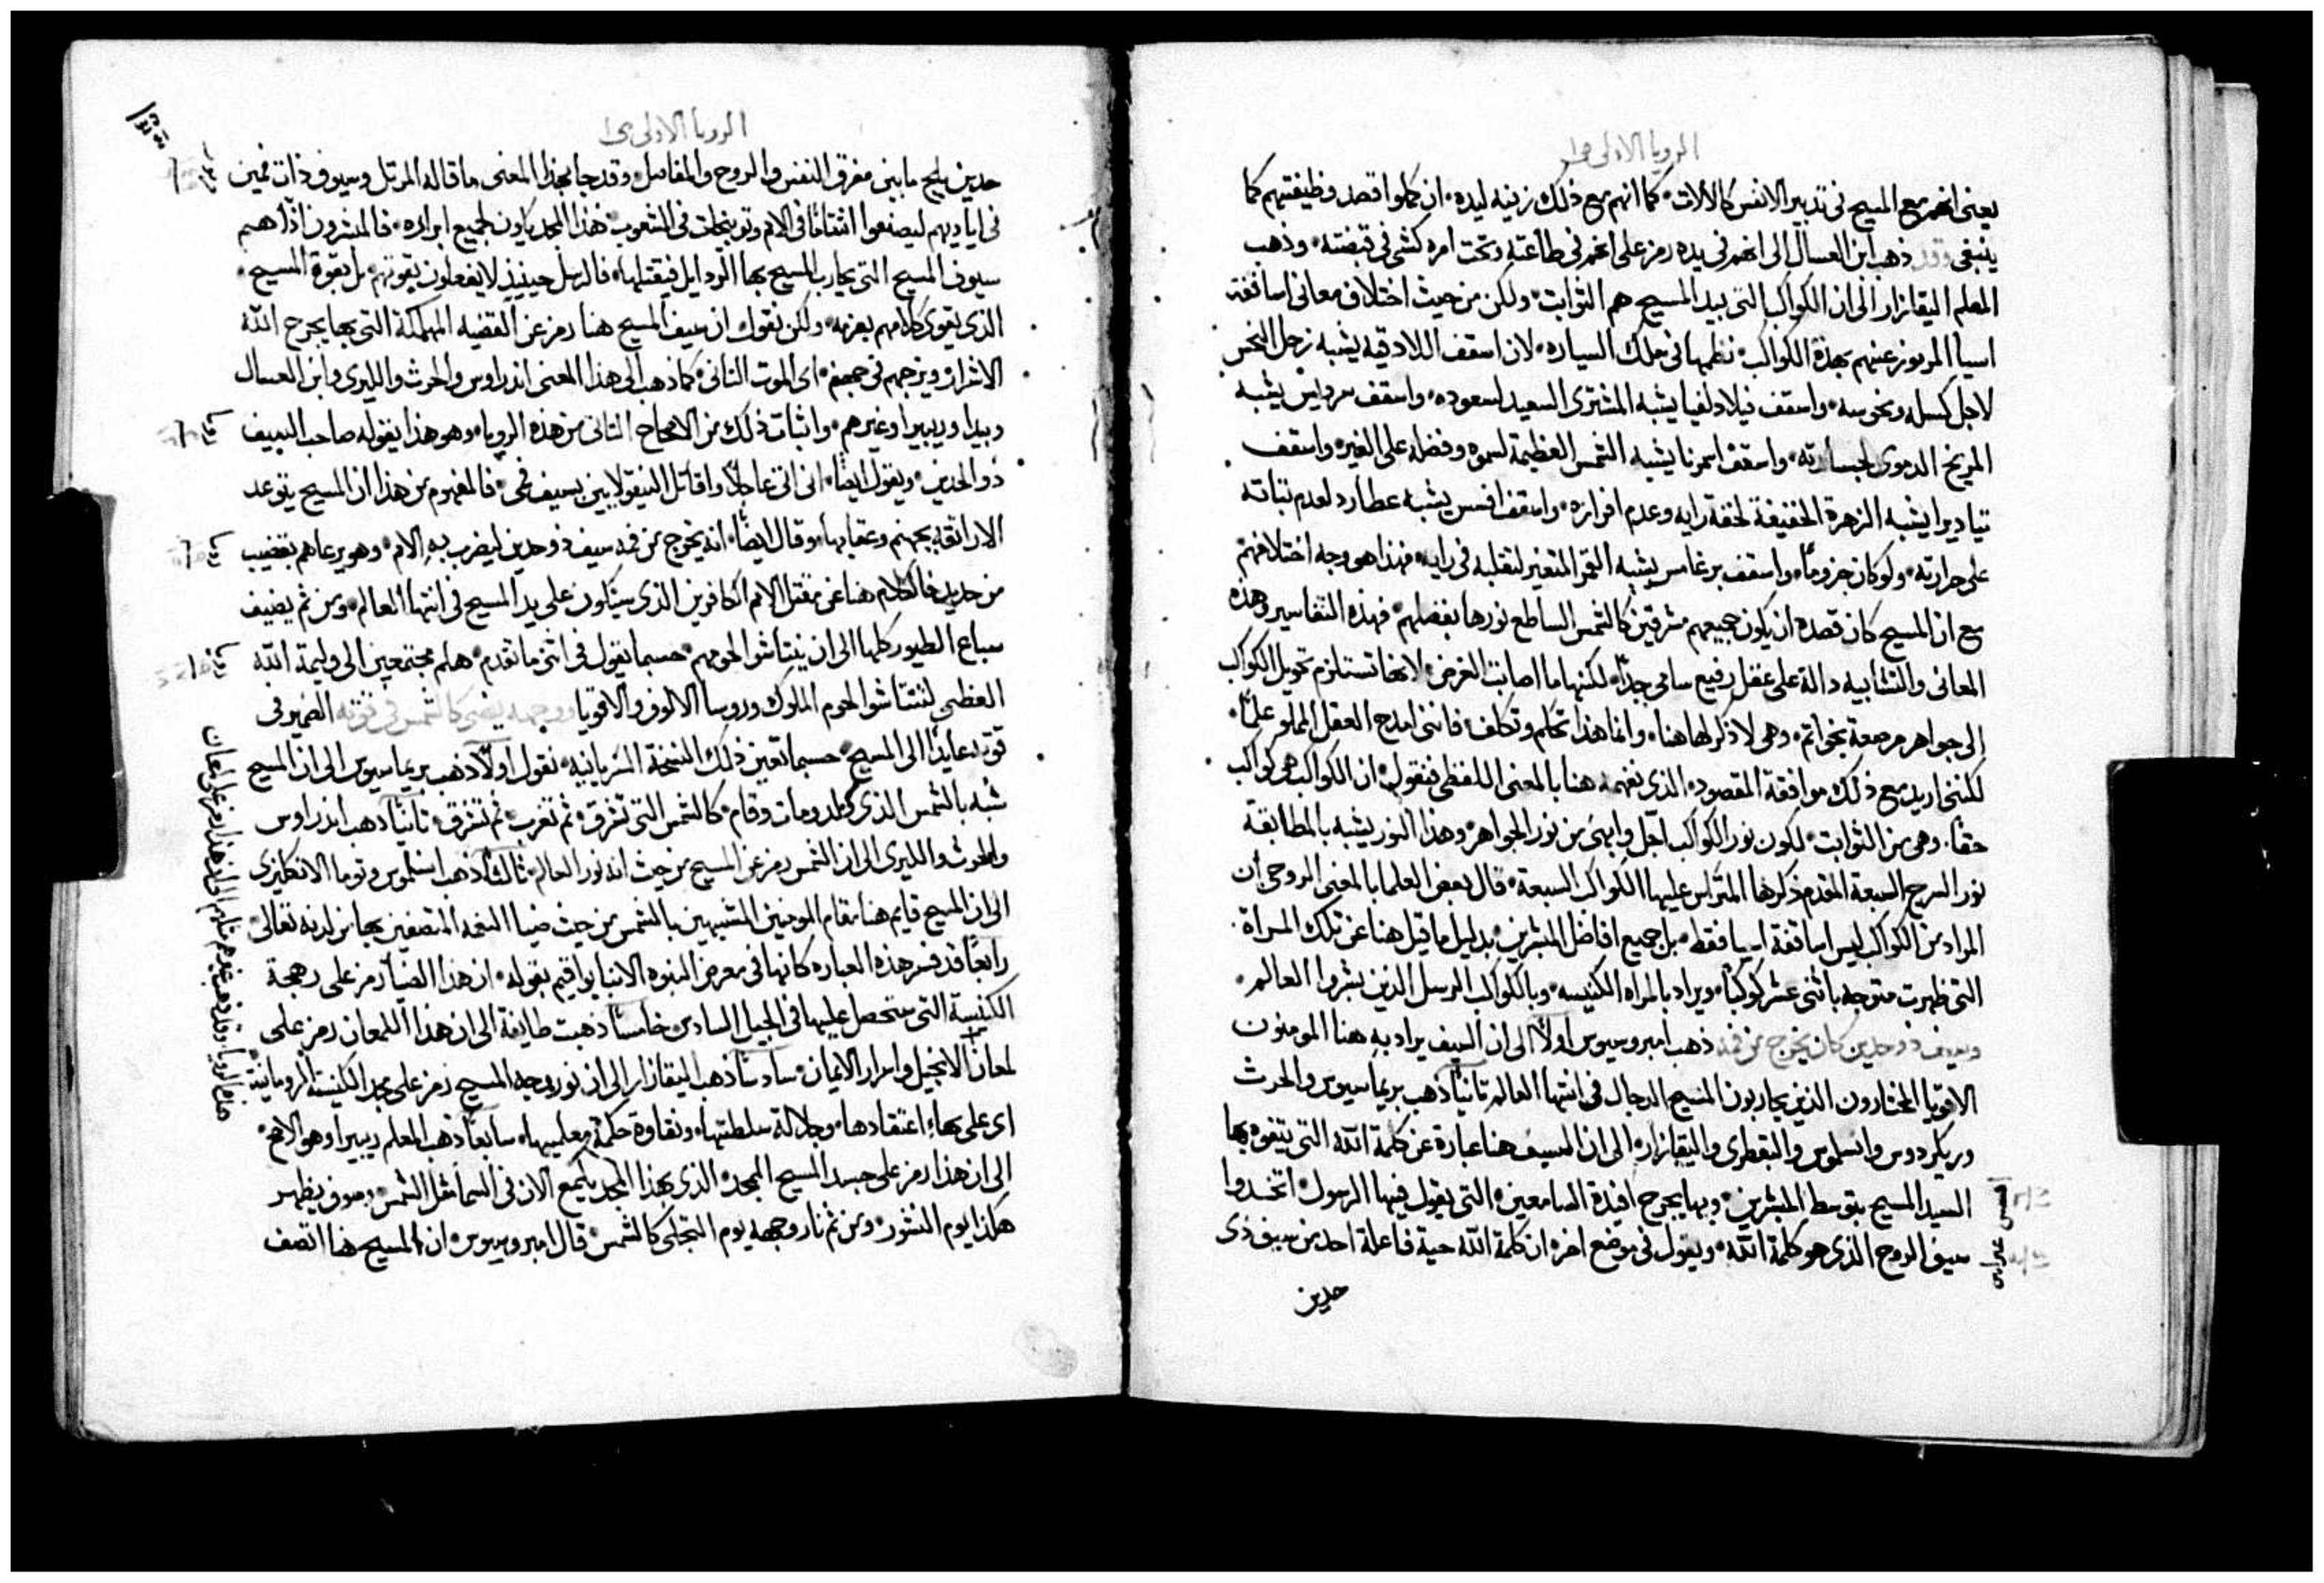 الرويا الاولى ص١
يعنى انهم مع المسيح فى تدبير الانفس كالالات كما انهم مع ذلك زينه ليده ان كملوا قصد وظيفتهم كما
ينبغى وقد ذهب ابن العسال الى انهم فى يده رمز على انهم فى طاعته وتحت امره كشى فى قبضته وذهب
المعلم اليقازار الى ان الكواكب التى بيد المسيح هم الثوابت ولكن من حيث اختلاف معانى اساقفة
اسيا المرموز عنهم بهذه الكواكب نظمها فى تلك السياره لان اسقف اللادقيه يشبه زحل النحس
لاجل كسله ونحوسه واسقف فيلادلفيا يشبه المشترى السعيد لسعوده واسقف سرديس يشبه
المريخ الدموى لجسارته واسقف اسمرنا يشبه الشمس العظيمة لسموه وفضله على الغير واسقف
تياديرا يشبه الزهرة الخفيفة لخفة رايه وعدم افرازه واسقف افسس يشبه عطارد لعدم ثباته
على حرارته ولو كان حزوما واسقف برغامس يشبه القمر المتغير لتقلبه فى رايه فهذا هو وجه اختلافهم
مع ان المسيح كان قصده ان يكون جميعهم مشرقين كالشمس الساطع نورها بفضلهم فهذه التفاسير وهذه
المعانى والتشابيه دالة على عقل رفيع سامى جدا لكنها ما اصابت الغرض لانها تستلزم تحويل الكواكب
الى جواهر مرصعة بخواتم وهى لا ذكر لها هنا وانما هذا تحكم وتكلف فاننى امدح العقل المملو علما
لكننى اريد مع ذلك موافقة المقصود الذى نفهمه هنا بالمعنى اللفظى فنقول ان الكواكب هى كواكب
حقا وهى من الثوابت لكون نور الكواكب اجل وابهى من نور الجواهر وهذا النور يشبه بالمطابقة
نور السرج السبعة المقدم ذكرها المتراس عليها الكواكب السبعة قال بعض العلما بالمعنى الروحى ان
المراد من الكواكب ليس اساقفة اسيا فقط بل جميع افاضل المبشرين بدليل ما قيل هنا عن تلك المراة
التى ظهرت متوجه باثنى عشر كوكبا ويراد بالمراه الكنيسه وبالكواكب الرسل الذين بشروا العالم
وسيف ذو حدين كان يخرج من فمه ذهب امبروسيوس اولا الى ان السيف يراد به هنا المومنون
الاقويا المختارون الذين يحاربون المسيح الدجال فى انتها العالم ثانيا ذهب بريماسيوس والحرث
وريكردوس وانسلموس والبقطرى واليقازار الى ان السيف هنا عبارة عن كلمة الله التى يتفوه بها
السيد المسيح بتوسط المبشرين وبها يجرح افيدة السامعين التى يقول فيها الرسول اتخذوا
سيف الروح الذى هو كلمة الله ويقول فى موضع اخر ان كلمة الله حية فاعلة احد من سيف ذى
حدين
الرويا الاولى ص١
حدين يلج ما بين مفرق النفس والروح والمفاصل وقد جا بهذا المعنى ما قاله المرتل وسيوف ذات فمين
فى اياديهم ليصنعوا انتقاما فى الامم وتوبيخات فى الشعوب هذا المجد يكون لجميع ابراره فالمبشرون اذا هم
سيوف المسيح التى يحارب المسيح بها الرذايل فيقتلها فالرسل حينيذ لا يفعلون بقوتهم بل بقوة المسيح
الذى يقوى كلامهم بعزمه ولكن نقول ان سيف المسيح هنا رمز عن القضيه المهلكة التى بها يجرح الله
الاشرار ويزجهم فى جهنم اى الموت الثانى كما ذهب الى هذا المعنى اندراوس والحرث والليرى وابن العسال
وبيدا وريبيرا وغيرهم واثبات ذلك من الاصحاح الثانى من هذه الرويا وهو هذا يقوله صاحب السيف
ذو الحدين ويقول ايضا انى اتى عاجلا واقاتل النيقولايين بسيف فمى فالمفهوم من هذا ان المسيح يتوعد
الاراتقه بجهنم وعقابها وقال ايضا انه يخرج من فمه سيف ذو حدين ليضرب به الامم وهو يرعاهم بقضيب
من حديد فالكلام هنا عن مقتل الامم الكافرين الذى سيكون على يد المسيح فى انتها العالم ومن ثم يضيف
سباع الطيور كلها الى ان ينتاشوا لحومهم حسبما يقول فى اثر ما تقدم هلم مجتمعين الى وليمة الله
العظمى لتنتاشوا لحوم الملوك وروسا الالوف والاقويا ووجهه يضى كالشمس فى قوته الضمير فى
قوته عايد الى المسيح حسبما تعين ذلك النسخة السريانيه نقول اولا ذهب بريماسيوس الى ان المسيح
شبه بالشمس الذى ولد ومات وقام كالشمس التى تشرق ثم تغرب ثم تشرق ثانيا ذهب اندراوس
والحرث والليرى الى ان الشمس رمز عن المسيح من حيث انه نور العالم ثالثا ذهب انسلموس وتوما الانكليزى
الى ان المسيح قايم هنا مقام المومنين المشبهين بالشمس من حيث ضيا النعمه المتصفين بها من لدنه تعالى
رابعا قد فسر هذه العباره كانها فى معرض النبوه الانبا يواقيم بقوله ان هذا الضيا رمز على رهجة
الكنيسة التى ستحصل عليها فى الجيل السادس خامسا ذهبت طايفة الى ان هذا اللمعان رمز على
لمعان الانجيل واسرار الايمان سادسا ذهب اليقازار الى ان نور وجه المسيح رمز على مجد الكنيسة الرومانية
اى على بهاء اعتقادها وجلالة سلطنتها ونقاوة حكمة معلميها سابعا ذهب المعلم ريبيرا وهو الاصح
الى ان هذا رمز على جسد المسيح الممجد الذى بهذا المجد يلمع الان فى السما مثل الشمس وسوف يظهر
هكذا يوم النشور ومن ثم نار وجهه يوم التجلى كالشمس قال امبروسيوس ان المسيح هنا اتصف